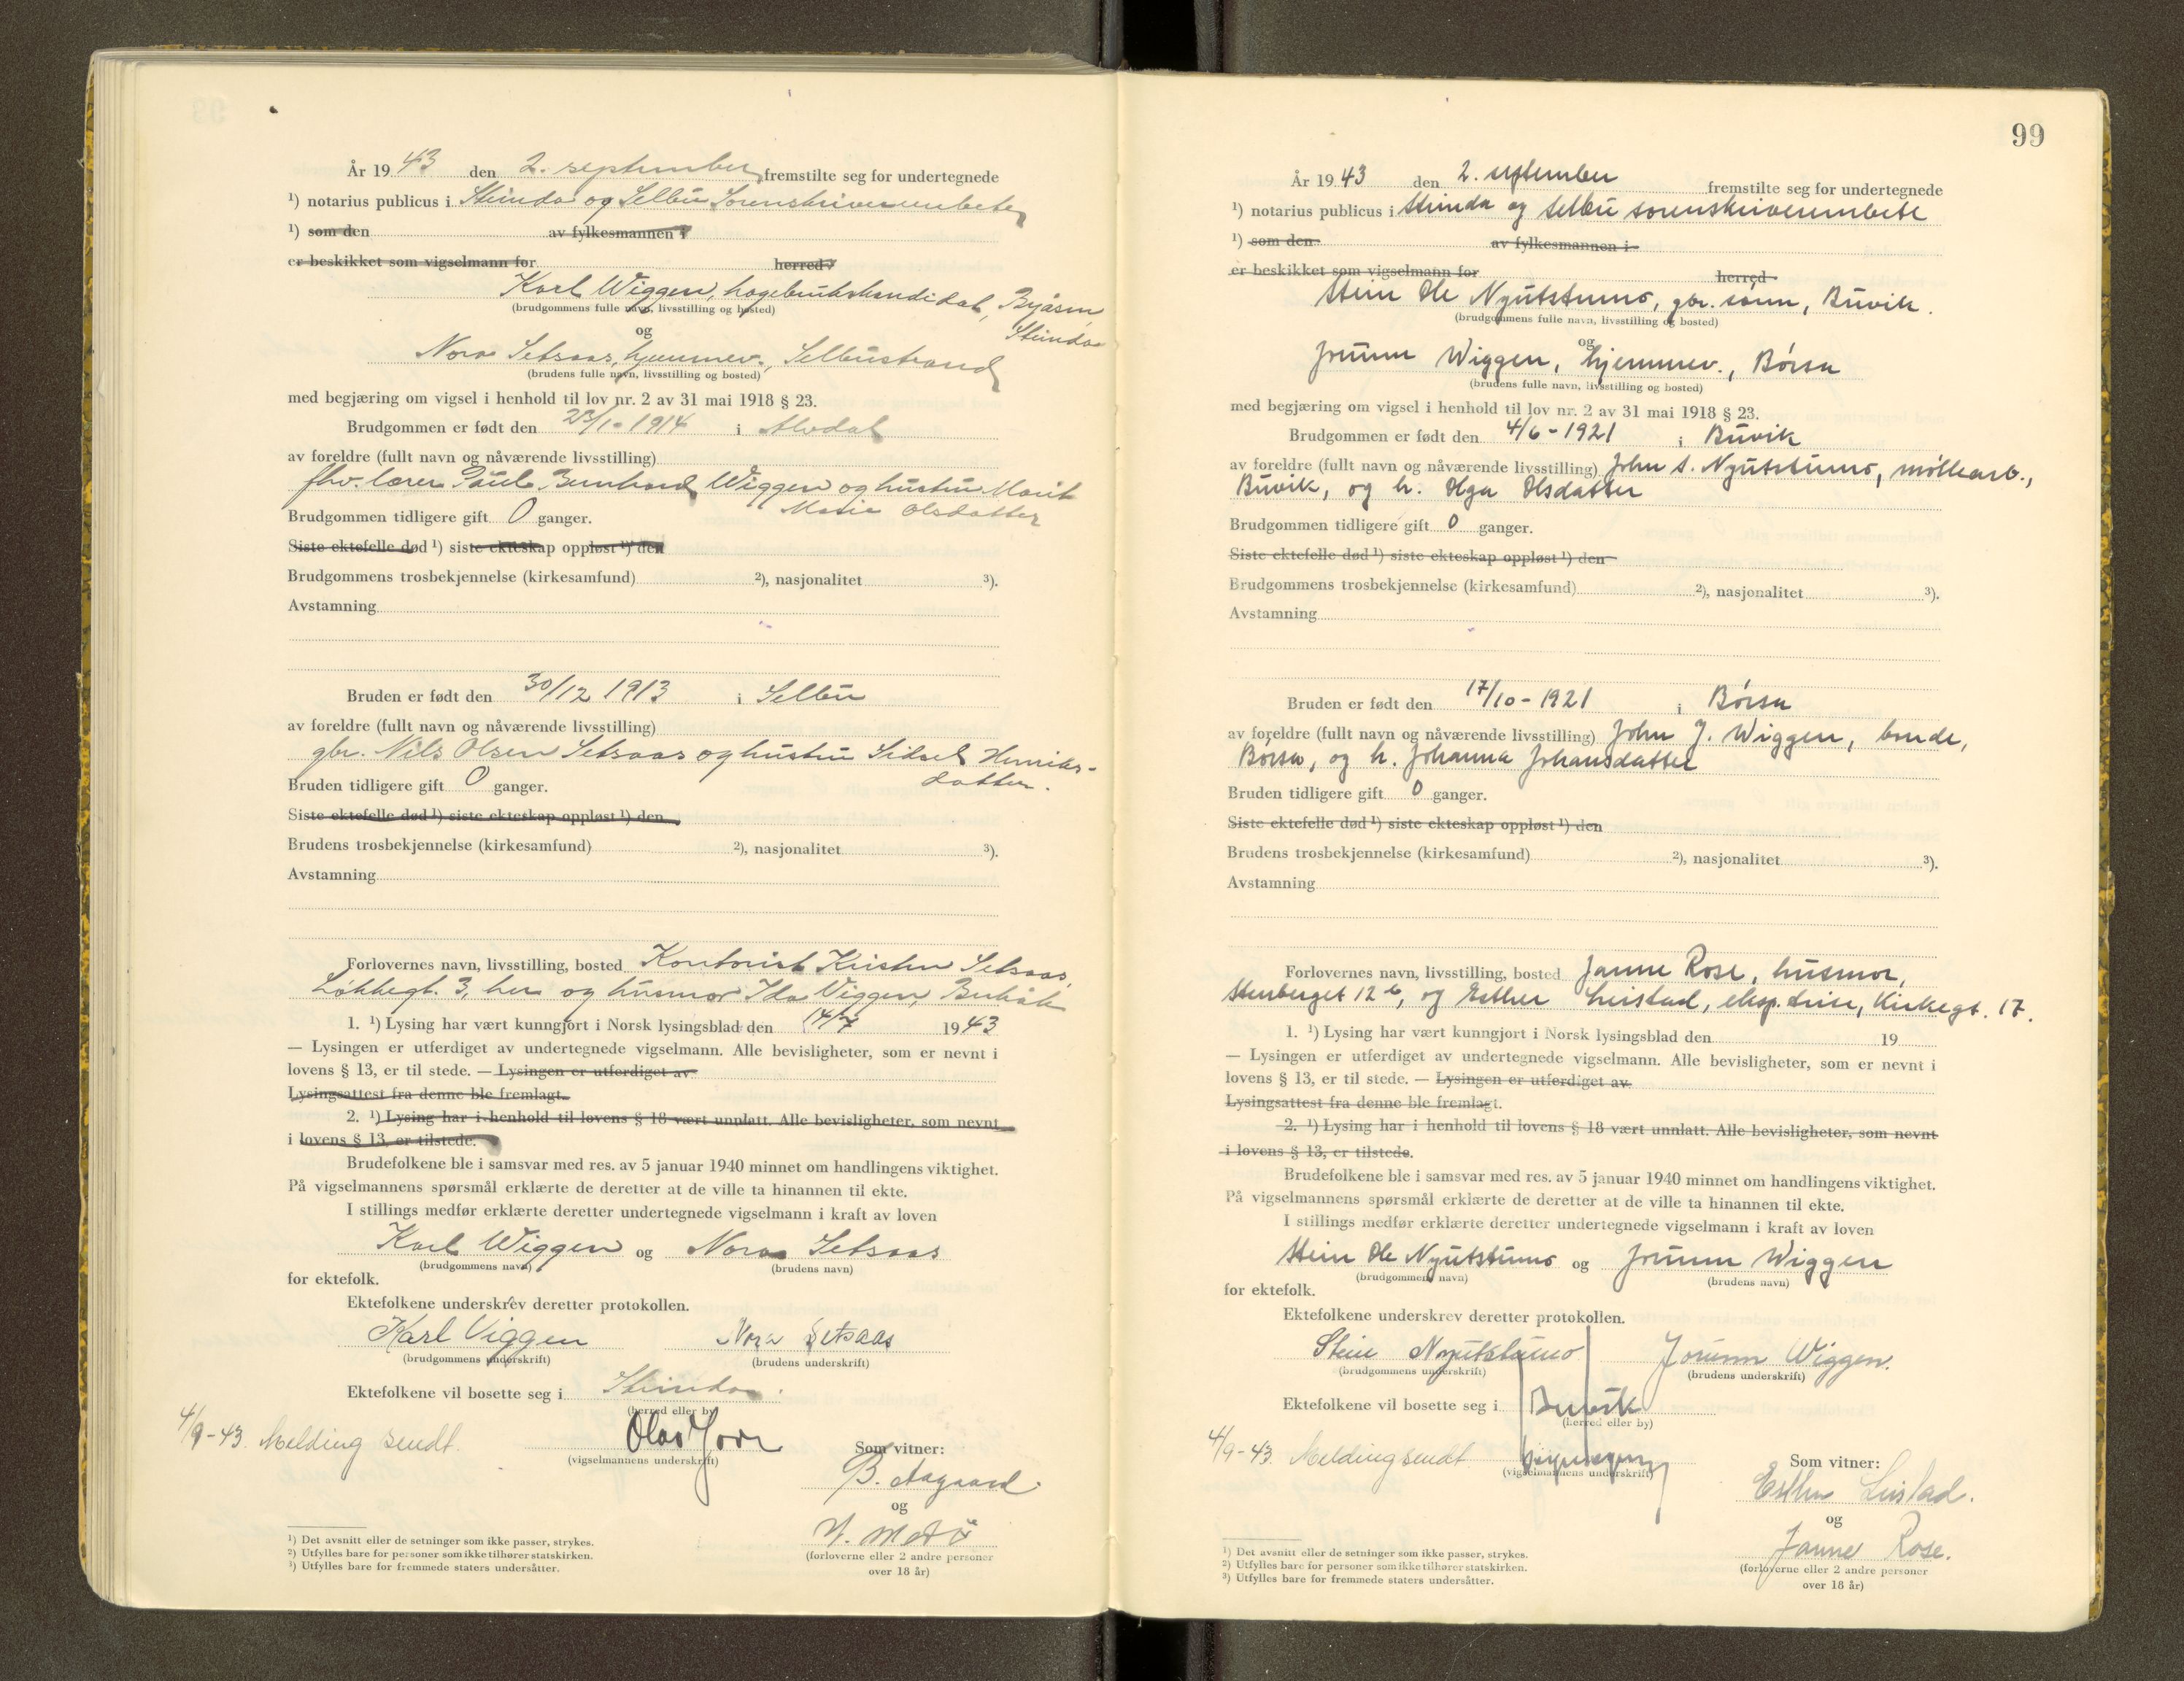 År 1943 den 2. september fremstilte seg for undertegnede
¹) notarius publicus i Strinda og Selbu Sorenskriverembete
¹) som den av fylkesmannen i
er beskikket som vigselmann for herred
Karl Wiggen, hagebrukskandidat, Byåsen
Strinda
(brudgommens fulle navn, livsstilling og bosted)
og
Nora Setsaas, hjemmev., Selbustrand
(brudens fulle navn, livsstilling og bosted)
med begjæring om vigsel i henhold til lov nr. 2 av 31 mai 1918 § 23.
Brudgommen er født den 23/1-1914 i Alvdal
av foreldre (fullt navn og nåværende livsstilling)
fhv. lærer Paul Bernhard Wiggen og hustru Marit
Marie Olsdatter
Brudgommen tidligere gift 0 ganger.
Siste ektefelle død ¹) siste ekteskap oppløst ¹) den
Brudgommens trosbekjennelse (kirkesamfund) ²), nasjonalitet ³).
Avstamning
Bruden er født den 30/12 1913 i Selbu
av foreldre (fullt navn og nåværende livsstilling)
gbr. Nils Olsen Setsaas og hustru Sidsel Henriks-
datter.
Bruden tidligere gift 0 ganger.
Siste ektefelle død ¹) siste ekteskap oppløst ¹) den
Brudens trosbekjennelse (kirkesamfund) ²), nasjonalitet ³).
Avstamning
Forlovernes navn, livsstilling, bosted Kontorist Kirsten Setsaas,
Løkkegt. 3, her og husmor Ida Wiggen,
1. ¹) Lysing har vært kunngjort i Norsk lysingsblad den 14/7 1943
— Lysingen er utferdiget av undertegnede vigselmann. Alle bevisligheter, som er nevnt i
lovens § 13, er til stede. — Lysingen er utferdiget av
Lysingsattest fra denne ble fremlagt.
2. ¹) Lysing har i henhold til lovens § 18 vært unnlatt. Alle bevisligheter, som nevnt
i lovens § 13, er tilstede.
Brudefolkene ble i samsvar med res. av 5 januar 1940 minnet om handlingens viktighet.
På vigselmannens spørsmål erklærte de deretter at de ville ta hinannen til ekte.
I stillings medfør erklærte deretter undertegnede vigselmann i kraft av loven
Karl Wiggen og Nora Setsaas
(brudgommens navn) (brudens navn)
for ektefolk.
Ektefolkene underskrev deretter protokollen.
Karl Viggen Nora Setsaas
(brudgommens underskrift) (brudens underskrift)
Ektefolkene vil bosette seg i Strinda.
(herred eller by)
4/9-43. Melding sendt.
(vigselmannens underskrift)
Som vitner:
B. Aagaard
og
(forloverne eller 2 andre personer
over 18 år)
¹) Det avsnitt eller de setninger som ikke passer, strykes.
²) Utfylles bare for personer som ikke tilhører statskirken.
³) Utfylles bare for fremmede staters undersåtter.
99
År 1943 den 2. september fremstilte seg for undertegnede
¹) notarius publicus i Strinda og Selbu sorenskriverembete
¹) som den av fylkesmannen i
er beskikket som vigselmann for herred
Stein Ole Nyutstumo, gbr. sønn, Buvik.
(brudgommens fulle navn, livsstilling og bosted)
og
Jorunn Wiggen, hjemmev., Børsa
(brudens fulle navn, livsstilling og bosted)
med begjæring om vigsel i henhold til lov nr. 2 av 31 mai 1918 § 23.
Brudgommen er født den 4/6-1921 i Buvik
av foreldre (fullt navn og nåværende livsstilling) John S. Nyutstumo, møllearb.,
Buvik, og h. Olga Olsdatter
Brudgommen tidligere gift 0 ganger.
Siste ektefelle død ¹) siste ekteskap oppløst ¹) den
Brudgommens trosbekjennelse (kirkesamfund) ²), nasjonalitet ³).
Avstamning
Bruden er født den 17/10-1921 i Børsa
av foreldre (fullt navn og nåværende livsstilling) John J. Wiggen, bonde,
Børsa, og h. Johanna Johansdatter
Bruden tidligere gift 0 ganger.
Siste ektefelle død ¹) siste ekteskap oppløst ¹) den
Brudens trosbekjennelse (kirkesamfund) ²), nasjonalitet ³).
Avstamning
Forlovernes navn, livsstilling, bosted Janne Rose, husmor,
Stenberget 12 b, og Esther Leistad, eksp.trise, Kirkegt. 17.
1. ¹) Lysing har vært kunngjort i Norsk lysingsblad den 19
— Lysingen er utferdiget av undertegnede vigselmann. Alle bevisligheter, som er nevnt i
lovens § 13, er til stede. — Lysingen er utferdiget av
Lysingsattest fra denne ble fremlagt.
2. ¹) Lysing har i henhold til lovens § 18 vært unnlatt. Alle bevisligheter, som nevnt
i lovens § 13, er tilstede.
Brudefolkene ble i samsvar med res. av 5 januar 1940 minnet om handlingens viktighet.
På vigselmannens spørsmål erklærte de deretter at de ville ta hinannen til ekte.
I stillings medfør erklærte deretter undertegnede vigselmann i kraft av loven
Stein Ole Nyutstumo og Jorunn Wiggen
(brudgommens navn) (brudens navn)
for ektefolk.
Ektefolkene underskrev deretter protokollen.
Stein Nyutstumo Jorunn Wiggen.
(brudgommens underskrift) (brudens underskrift)
Ektefolkene vil bosette seg i Buvik
(herred eller by)
4/9-43. Melding sendt
(vigselmannens underskrift)
Som vitner:
Esther Leistad.
og
Janne Rose.
(forloverne eller 2 andre personer
over 18 år)
¹) Det avsnitt eller de setninger som ikke passer, strykes.
²) Utfylles bare for personer som ikke tilhører statskirken.
³) Utfylles bare for fremmede staters undersåtter.